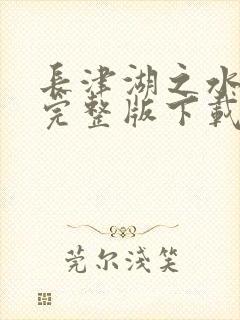 長津湖之水
完整版下載
莞尔淺笑